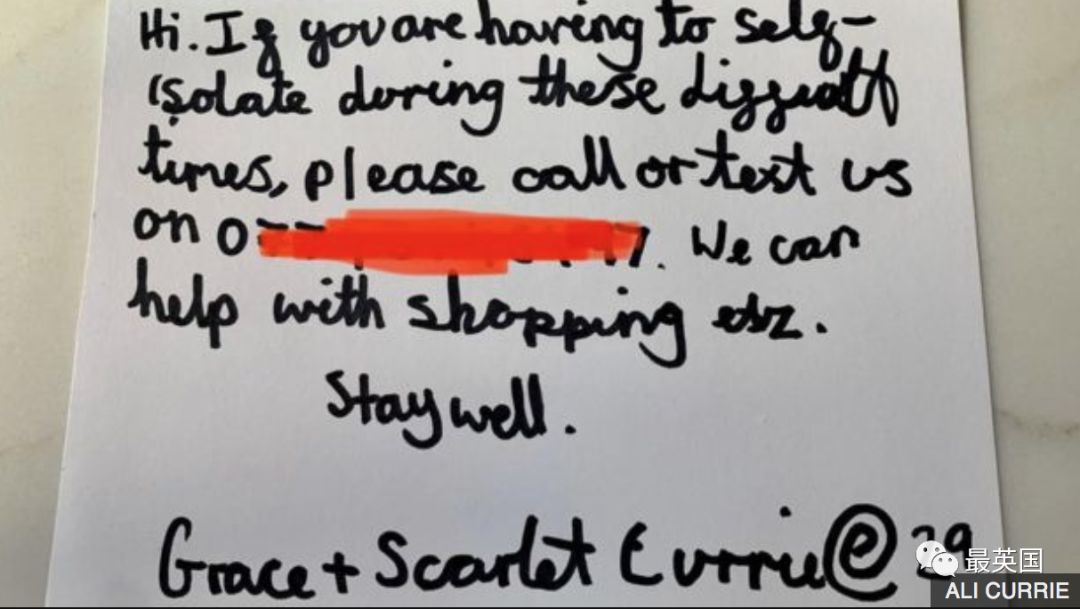 Hi. If you are having to self-
isolate during these difficult
times, please call or text us
on 0 7. We can
help with shopping etc.
Stay well.
Grace + Scarlet Currie @ 29
最英国
ALI CURRIE